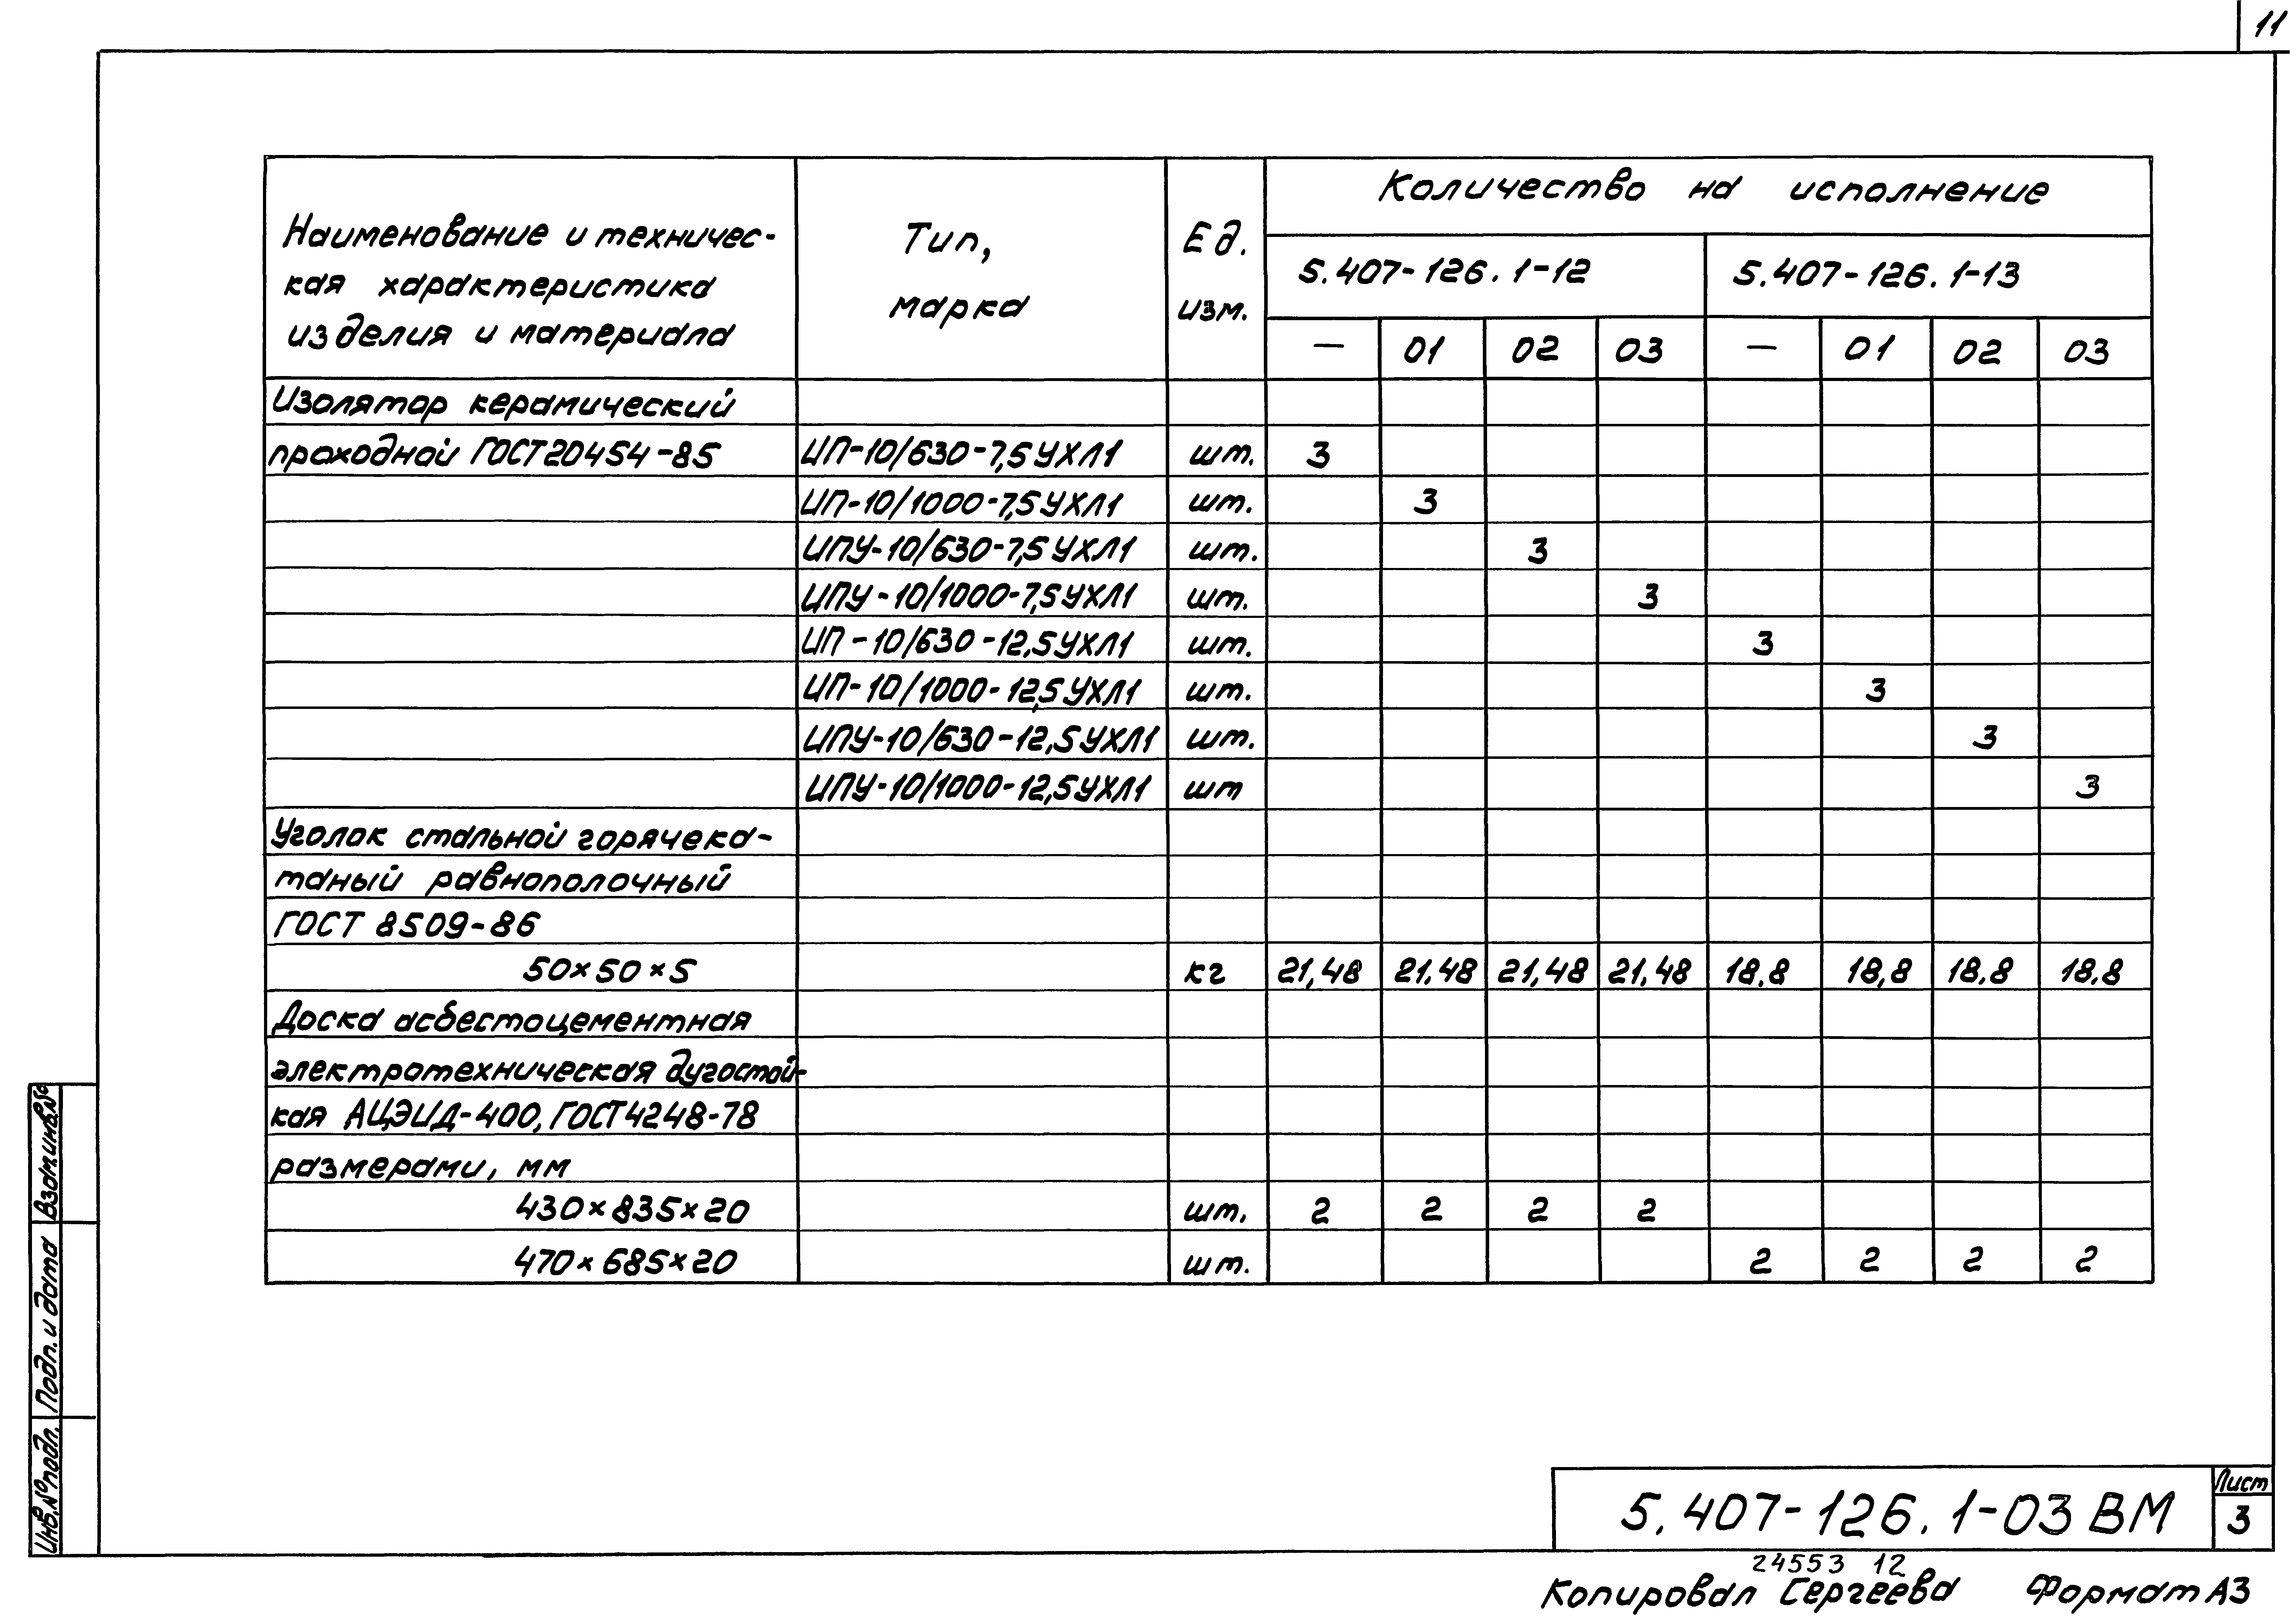 11
Наименование и техничес- Тип, Ед. Количество на исполнение
кая характеристика марка изм. 5.407-126.1-12 5.407-126.1-13
изделия и материала — 01 02 03 — 01 02 03
Изолятор керамический
проходной ГОСТ20454-85 ИП-10/630-7,5УХЛ1 шт. 3
ИП-10/1000-7,5УХЛ1 шт. 3
ИПУ-10/630-7,5УХЛ1 шт. 3
ИПУ-10/1000-7,5УХЛ1 шт. 3
ИП-10/630-12,5УХЛ1 шт. 3
ИП-10/1000-12,5УХЛ1 шт. 3
ИПУ-10/630-12,5УХЛ1 шт. 3
ИПУ-10/1000-12,5УХЛ1 шт 3
Уголок стальной горячека-
таный равнополочный
ГОСТ 8509-86
50×50×5 кг 21,48 21,48 21,48 21,48 18,8 18,8 18,8 18,8
Доска асбестоцементная
электротехническая дугостой-
кая АЦЭИД-400, ГОСТ4248-78
размерами, мм
430×835×20 шт. 2 2 2 2
470×685×20 шт. 2 2 2 2
Взам.инв.№
Подп. и дата
Инв.№подл.
5.407-126.1-03 ВМ
Лист
3
24553 12
Копировал Сергеева Формат А3